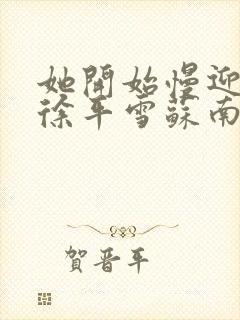 她開始慢迎
徐平雪蘇南
賀晋年